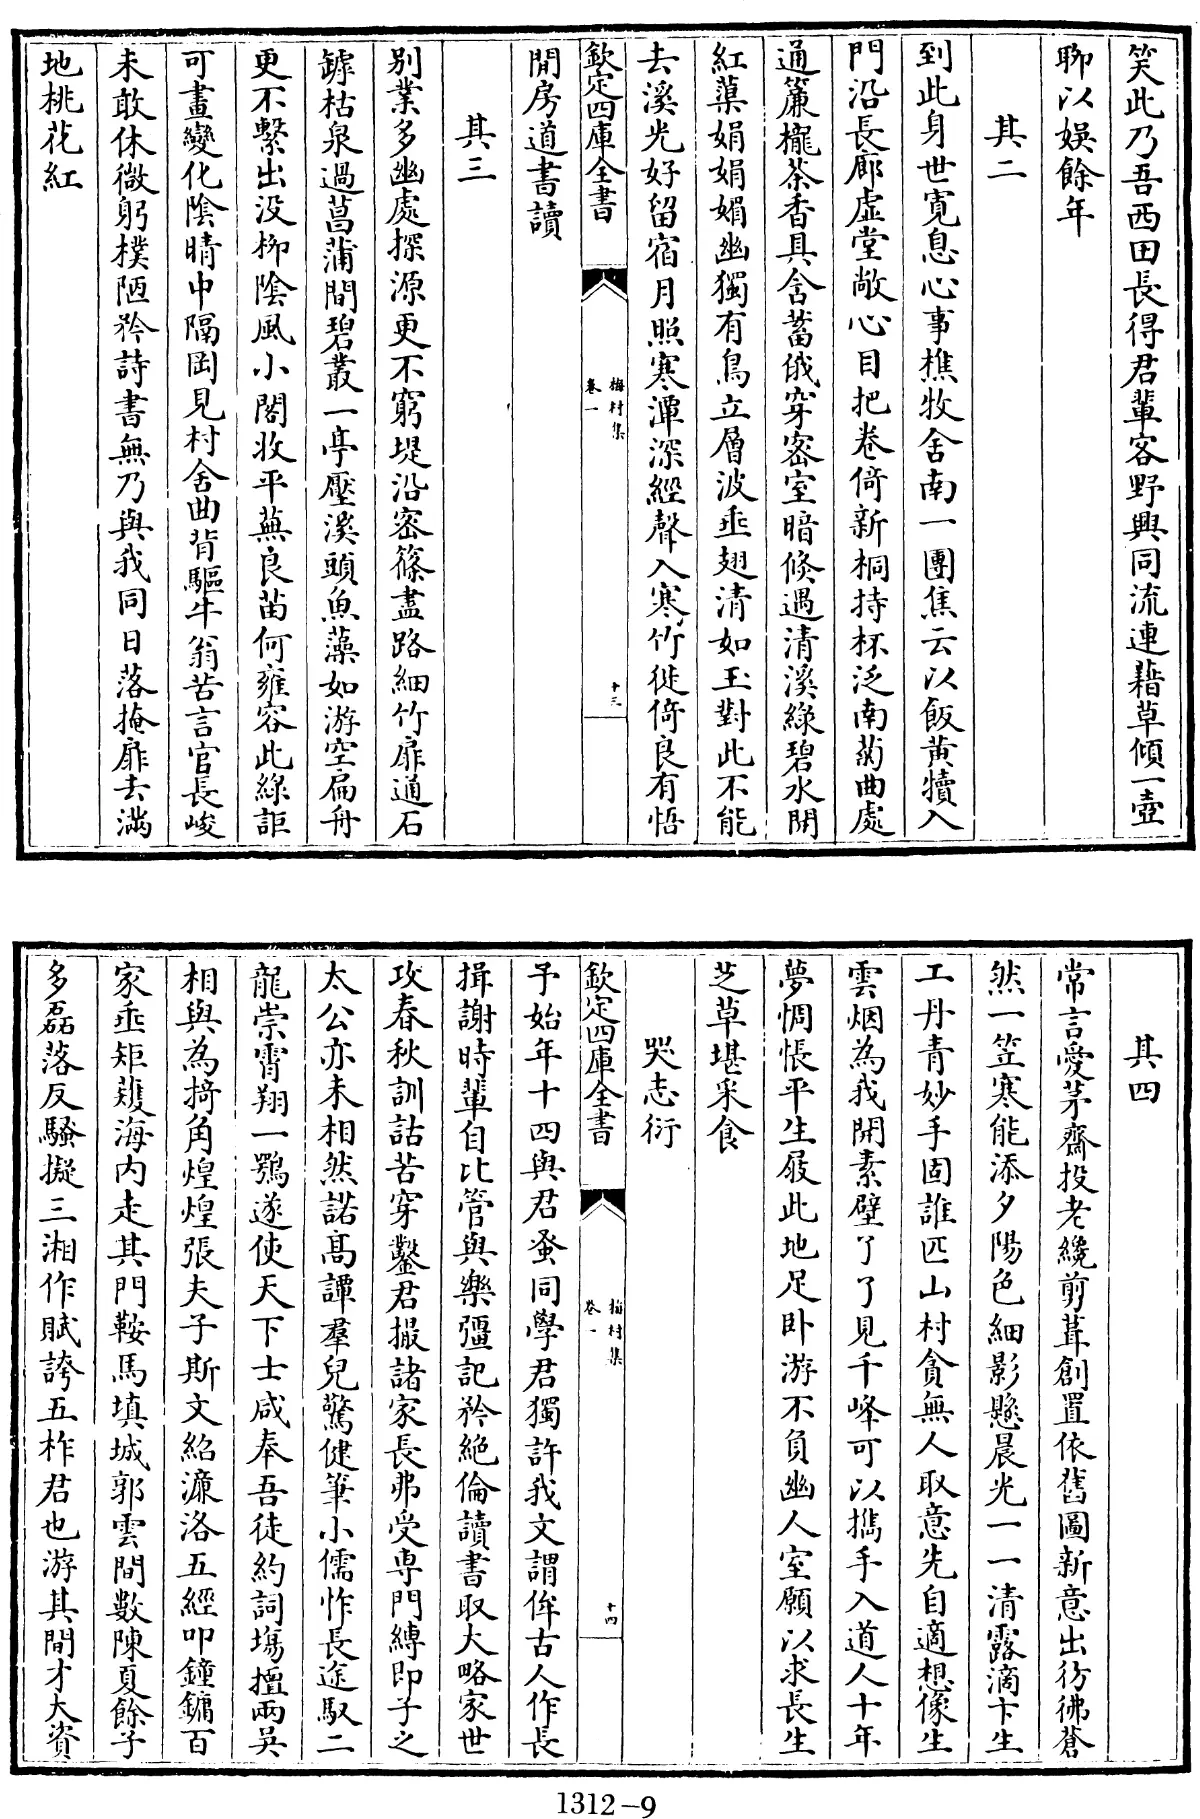 笑此乃吾西田長得君輩客野興同流連藉草傾一壺
聊以娛餘年
其二
到此身世寬息心事樵牧舍南一團焦云以飯黄犢入
門沿長廊虛堂敞心目把卷倚新桐持杯泛南菊曲處
通簾櫳茶香具含蓄俄穿密室暗倐遇清溪綠碧水開
紅蕖娟娟媚幽獨有鳥立層波垂翅清如玉對此不能
去溪光好留宿月照寒潭深經聲入寒竹徙倚良有悟
欽定四庫全書
梅村集
卷一
十三
閒房道書讀
其三
别業多幽處探源更不窮堤沿密篠盡路細竹扉通石
罅枯泉過菖蒲間碧叢一亭壓溪頭魚藻如游空扁舟
更不繫出没柳陰風小閣收平蕪良苗何雍容此綠詎
可畫變化陰晴中隔岡見村舍曲背驅牛翁苦言官長峻
未敢休微躬樸陋矜詩書無乃與我同日落掩扉去滿
地桃花紅
其四
常言愛茅齋投老纔剪葺創置依舊圖新意出彷彿蒼
然一笠寒能添夕陽色細影懸晨光一一清露滴卞生
工丹青妙手固誰匹山村貪無人取意先自適想像生
雲烟為我開素壁了了見千峰可以攜手入道人十年
夢惆悵平生屐此地足卧游不負幽人室願以求長生
芝草堪采食
哭志衍
欽定四庫全書
梅村集
卷一
十四
予始年十四與君蚤同學君獨許我文謂侔古人作長
揖謝時輩自比管與樂彊記矜絶倫讀書取大略家世
攻春秋訓詁苦穿鑿君撮諸家長弗受専門縛即子之
太公亦未相然諾高譚羣兒驚健筆小儒怍長途馭二
龍崇霄翔一鶚遂使天下士咸奉吾徒約詞塲擅兩吳
相與為掎角煌煌張夫子斯文紹濂洛五經叩鐘鏞百
家垂矩矱海内走其門鞍馬填城郭雲間數陳夏餘子
多磊落反騷擬三湘作賦誇五柞君也游其間才大資
1312-9